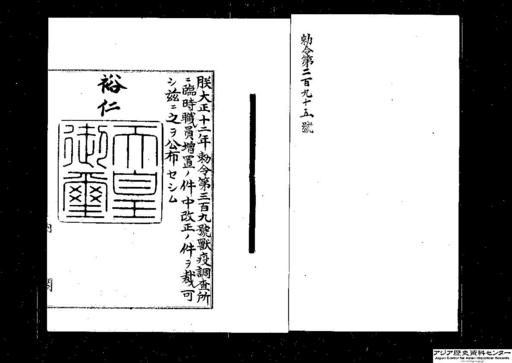 勅令第二百九十五號
朕大正十二年勅令第三百九號獸疫調査所
ニ臨時職員增置ノ件中改正ノ件ヲ裁可
シ茲ニ之ヲ公布セシム
裕仁
天皇
御璽
内閣
アジア歴史資料センター
Japan Center for Asian Historical Records